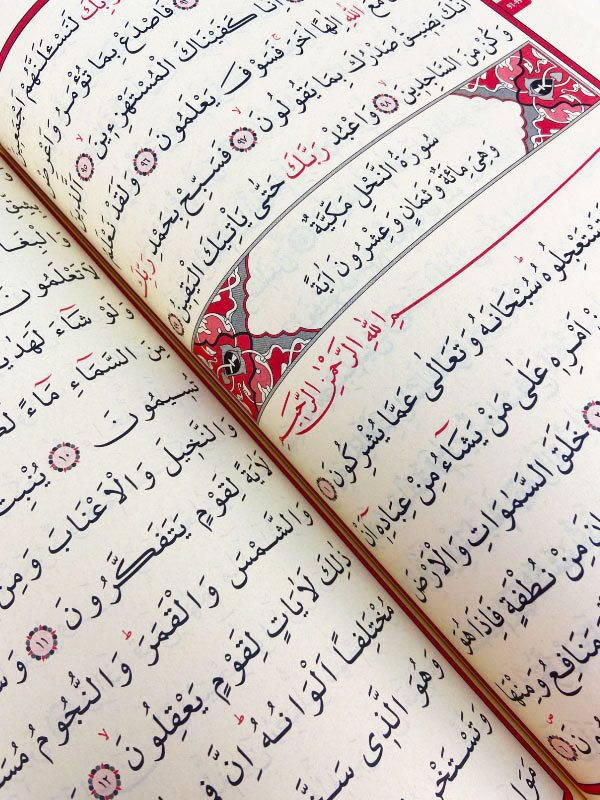 رَبِّكَ لَنَسْئَلَنَّهُمْ اَجْمَعِينَ
فَاصْدَعْ بِمَا تُؤْمَرُ وَاَعْرِضْ
اِنَّا كَفَيْنَاكَ الْمُسْتَهْزِءِينَ ٩٥ اَلَّذِينَ
مَعَ اللهِ اِلٰهًا اٰخَرَ فَسَوْفَ يَعْلَمُونَ ٩٦ وَلَقَدْ نَعْلَمُ
اَنَّكَ يَضِيقُ صَدْرُكَ بِمَا يَقُولُونَ ٩٧ فَسَبِّحْ بِحَمْدِ رَبِّكَ
وَكُنْ مِنَ السَّاجِدِينَ ٩٨ وَاعْبُدْ رَبَّكَ حَتّٰى يَاْتِيَكَ الْيَقِينُ ٩٩
سُورَةُ النَّحْلِ مَكِّيَّةٌ
وَهِىَ مِائَةٌ وَثَمَانٍ وَعِشْرُونَ اٰيَةً
مِ اللهِ الرَّحْمٰنِ الرَّحِيمِ
تَسْتَعْجِلُوهُ سُبْحَانَهُ وَتَعَالٰى عَمَّا يُشْرِكُونَ ١
اَمْرِهِ عَلٰى مَنْ يَشَٓاءُ مِنْ عِبَادِهِ اَنْ
خَلَقَ السَّمٰوَاتِ وَالْاَرْضَ
مِنْ نُطْفَةٍ فَاِذَا هُوَ
وَمَنَافِعُ وَمِنْهَا
لَا تَعْلَمُونَ
وَلَوْ شَٓاءَ لَهَدٰي
مِنَ السَّمَٓاءِ مَٓاءً
تُسِيمُونَ ١٠ يُنْبِتُ
وَالنَّخِيلَ وَالْاَعْنَابَ وَمِنْ
لَاٰيَةً لِقَوْمٍ يَتَفَكَّرُونَ ١١
وَالشَّمْسَ وَالْقَمَرَ وَالنُّجُومُ مُسَ
ذٰلِكَ لَاٰيَاتٍ لِقَوْمٍ يَعْقِلُونَ ١٢
مُخْتَلِفًا اَلْوَانُهُ اِنَّ فِى
وَهُوَ الَّذِى سَخَّ
وَتَسْتَخْرِ